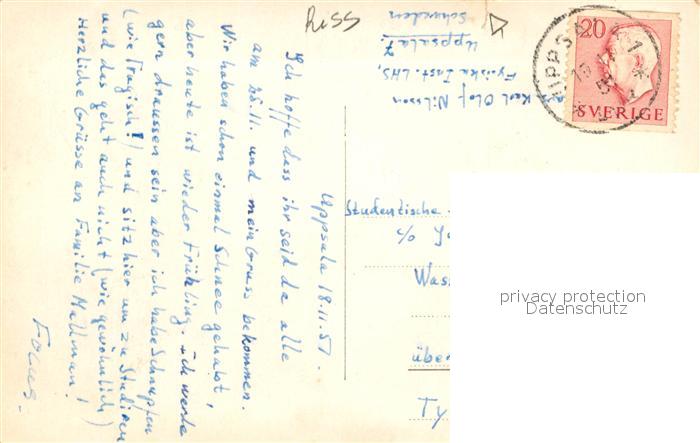 RISS
Karl Olof Nilsson
Fysiska Inst. LHS,
Uppsala 7
Schweden
20
SVERIGE
Uppsala 18.11.51.
Ich hoffe dass ihr seid da alle
am 25.11. und mein Gruss bekommen.
Wir haben schon einmal Schnee gehabt,
aber heute ist wieder Frühling. Ich werde
gern draussen sein aber ich habe Schnupfen
(wie tragisch!) und sitz hier um zu studieren
und das geht auch nicht (wie gewöhnlich)
Herzliche Grüsse an Familie Mallman!
Focus.
Studentische
c/o
Was
über
Ty
privacy protection
Datenschutz